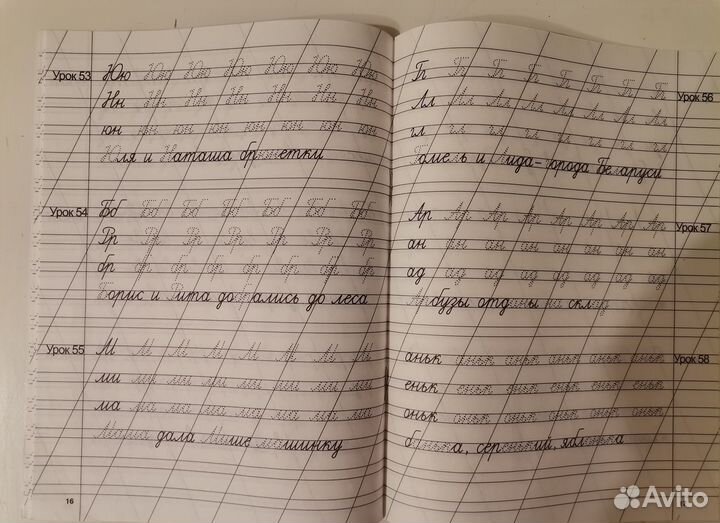 Урок 53 Юю Юю Юю Юю Юю Юю Юю
Нн Нн Нн Нн Нн Нн Нн
юн юн юн юн юн юн юн юн
Юля и Наташа брюнетки
Урок 54 Бб Бб Бб Бб Бб Бб Бб
Рр Рр Рр Рр Рр Рр Рр
бр бр бр бр бр бр бр бр
Борис и Рита добрались до леса
Урок 55 М М М М М М М М
ми ми ми ми ми ми ми ми
ма ма ма ма ма ма ма ма
Маша дала Мише машинку
16
Гг Гг Гг Гг Гг Гг Гг Гг
Лл Лл Лл Лл Лл Лл Лл Лл Урок 56
гл гл гл гл гл гл гл гл
Гомель и Лида - города Беларуси
Ар Ар Ар Ар Ар Ар Ар Ар Урок 57
ан ан ан ан ан ан ан ан
ад ад ад ад ад ад ад ад
Арбузы отданы на склад
аньк аньк аньк аньк аньк аньк Урок 58
еньк еньк еньк еньк еньк еньк
оньк оньк оньк оньк оньк оньк
банька, серенький, яблонька
Avito